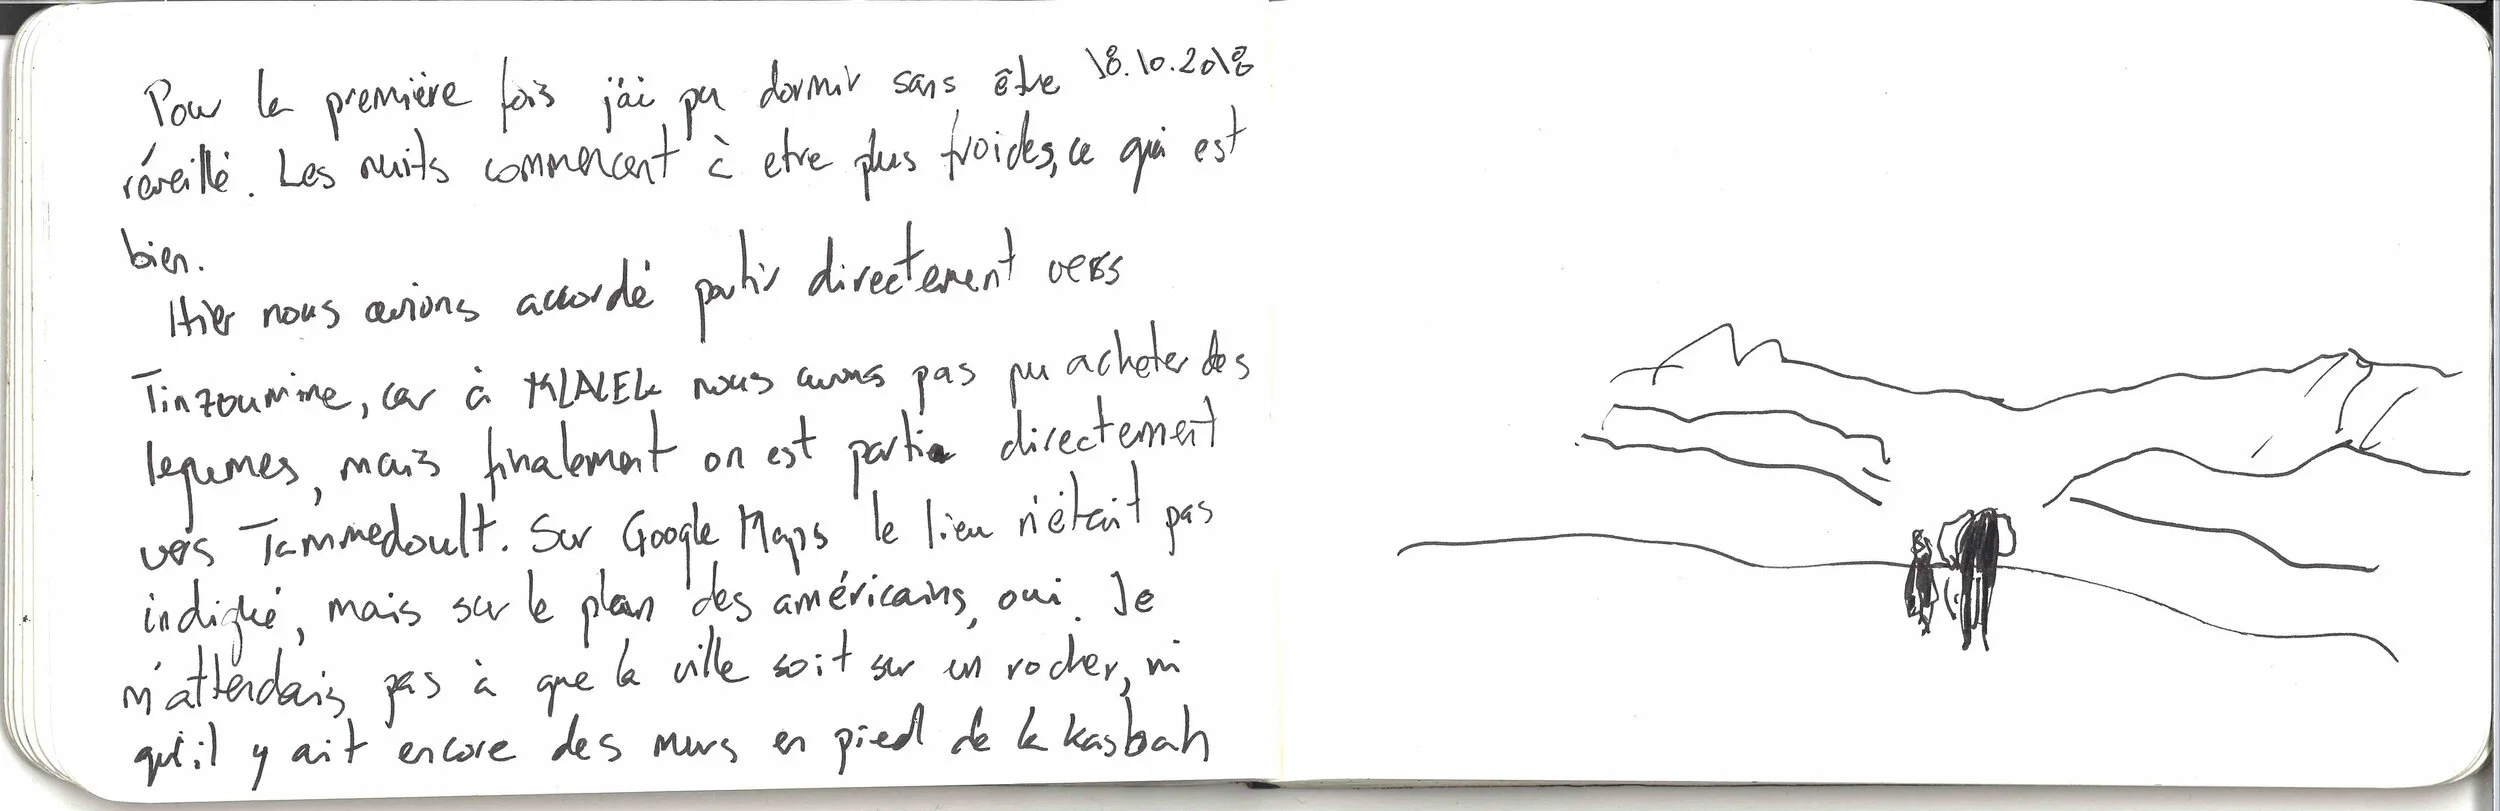 18.10.2018
Pour la première fois j'ai pu dormir sans être
réveillé. Les nuits commencent à etre plus froides, ce qui est
bien.
Hier nous avions accordé partir directement vers
Tinzoumine, car à nous avons pas pu acheter des
legumes, mais finalement on est parti directement
vers Tammedoult. Sur Google Maps le lieu n'était pas
indiqué, mais sur le plan des américains, oui. Je
m'attendais pas à que la ville soit sur un rocher, ni
qu'il y ait encore des murs en pied de la kasbah